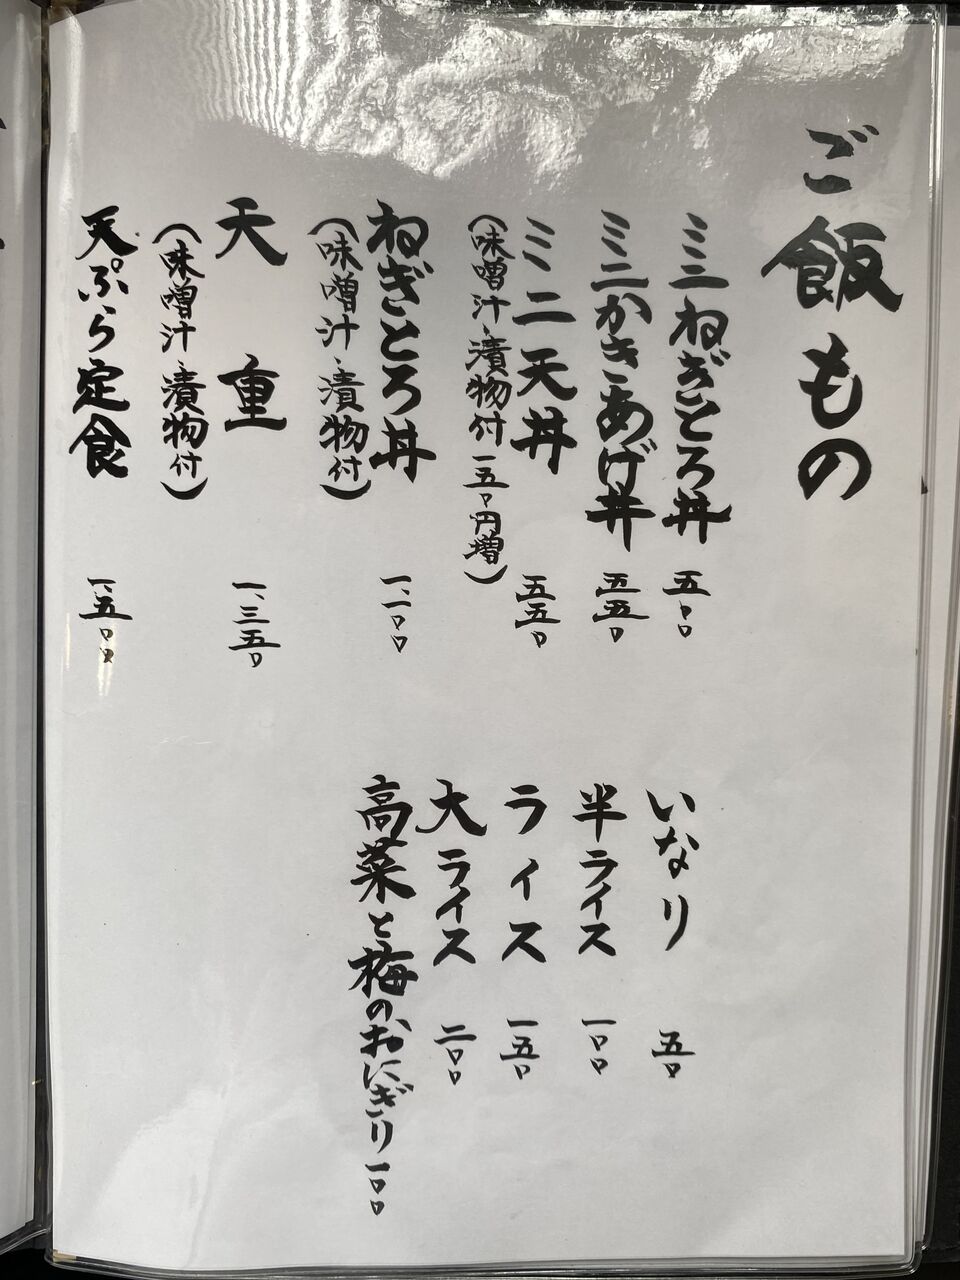 ご飯もの
ミニねぎとろ丼 五〇〇
ミニかきあげ丼 五五〇
ミニ天丼 五五〇
(味噌汁、漬物付 一五〇円増)
ねぎとろ丼 一、一〇〇
(味噌汁、漬物付)
天重 一、三五〇
(味噌汁、漬物付)
天ぷら定食 一、五〇〇
いなり 五〇
半ライス 一〇〇
ライス 一五〇
大ライス 二〇〇
高菜と梅のおにぎり 一〇〇